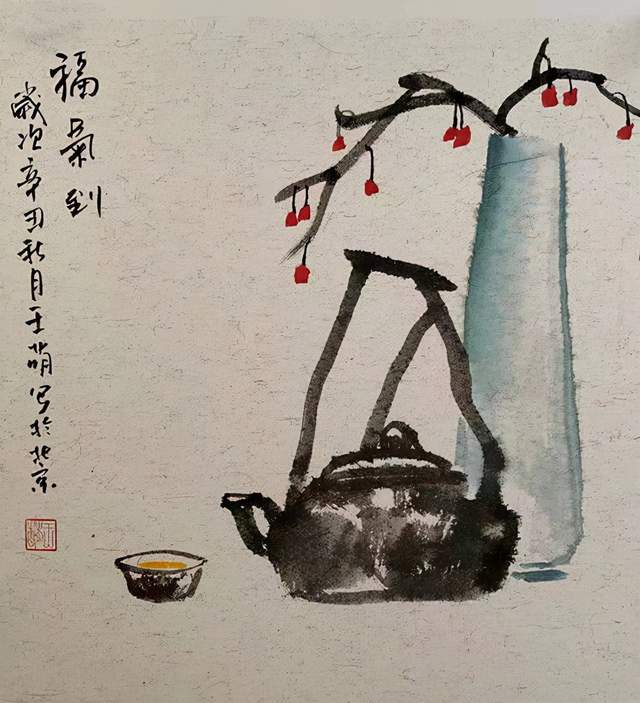 福氣到
歲次辛丑秋月王萌写於北京